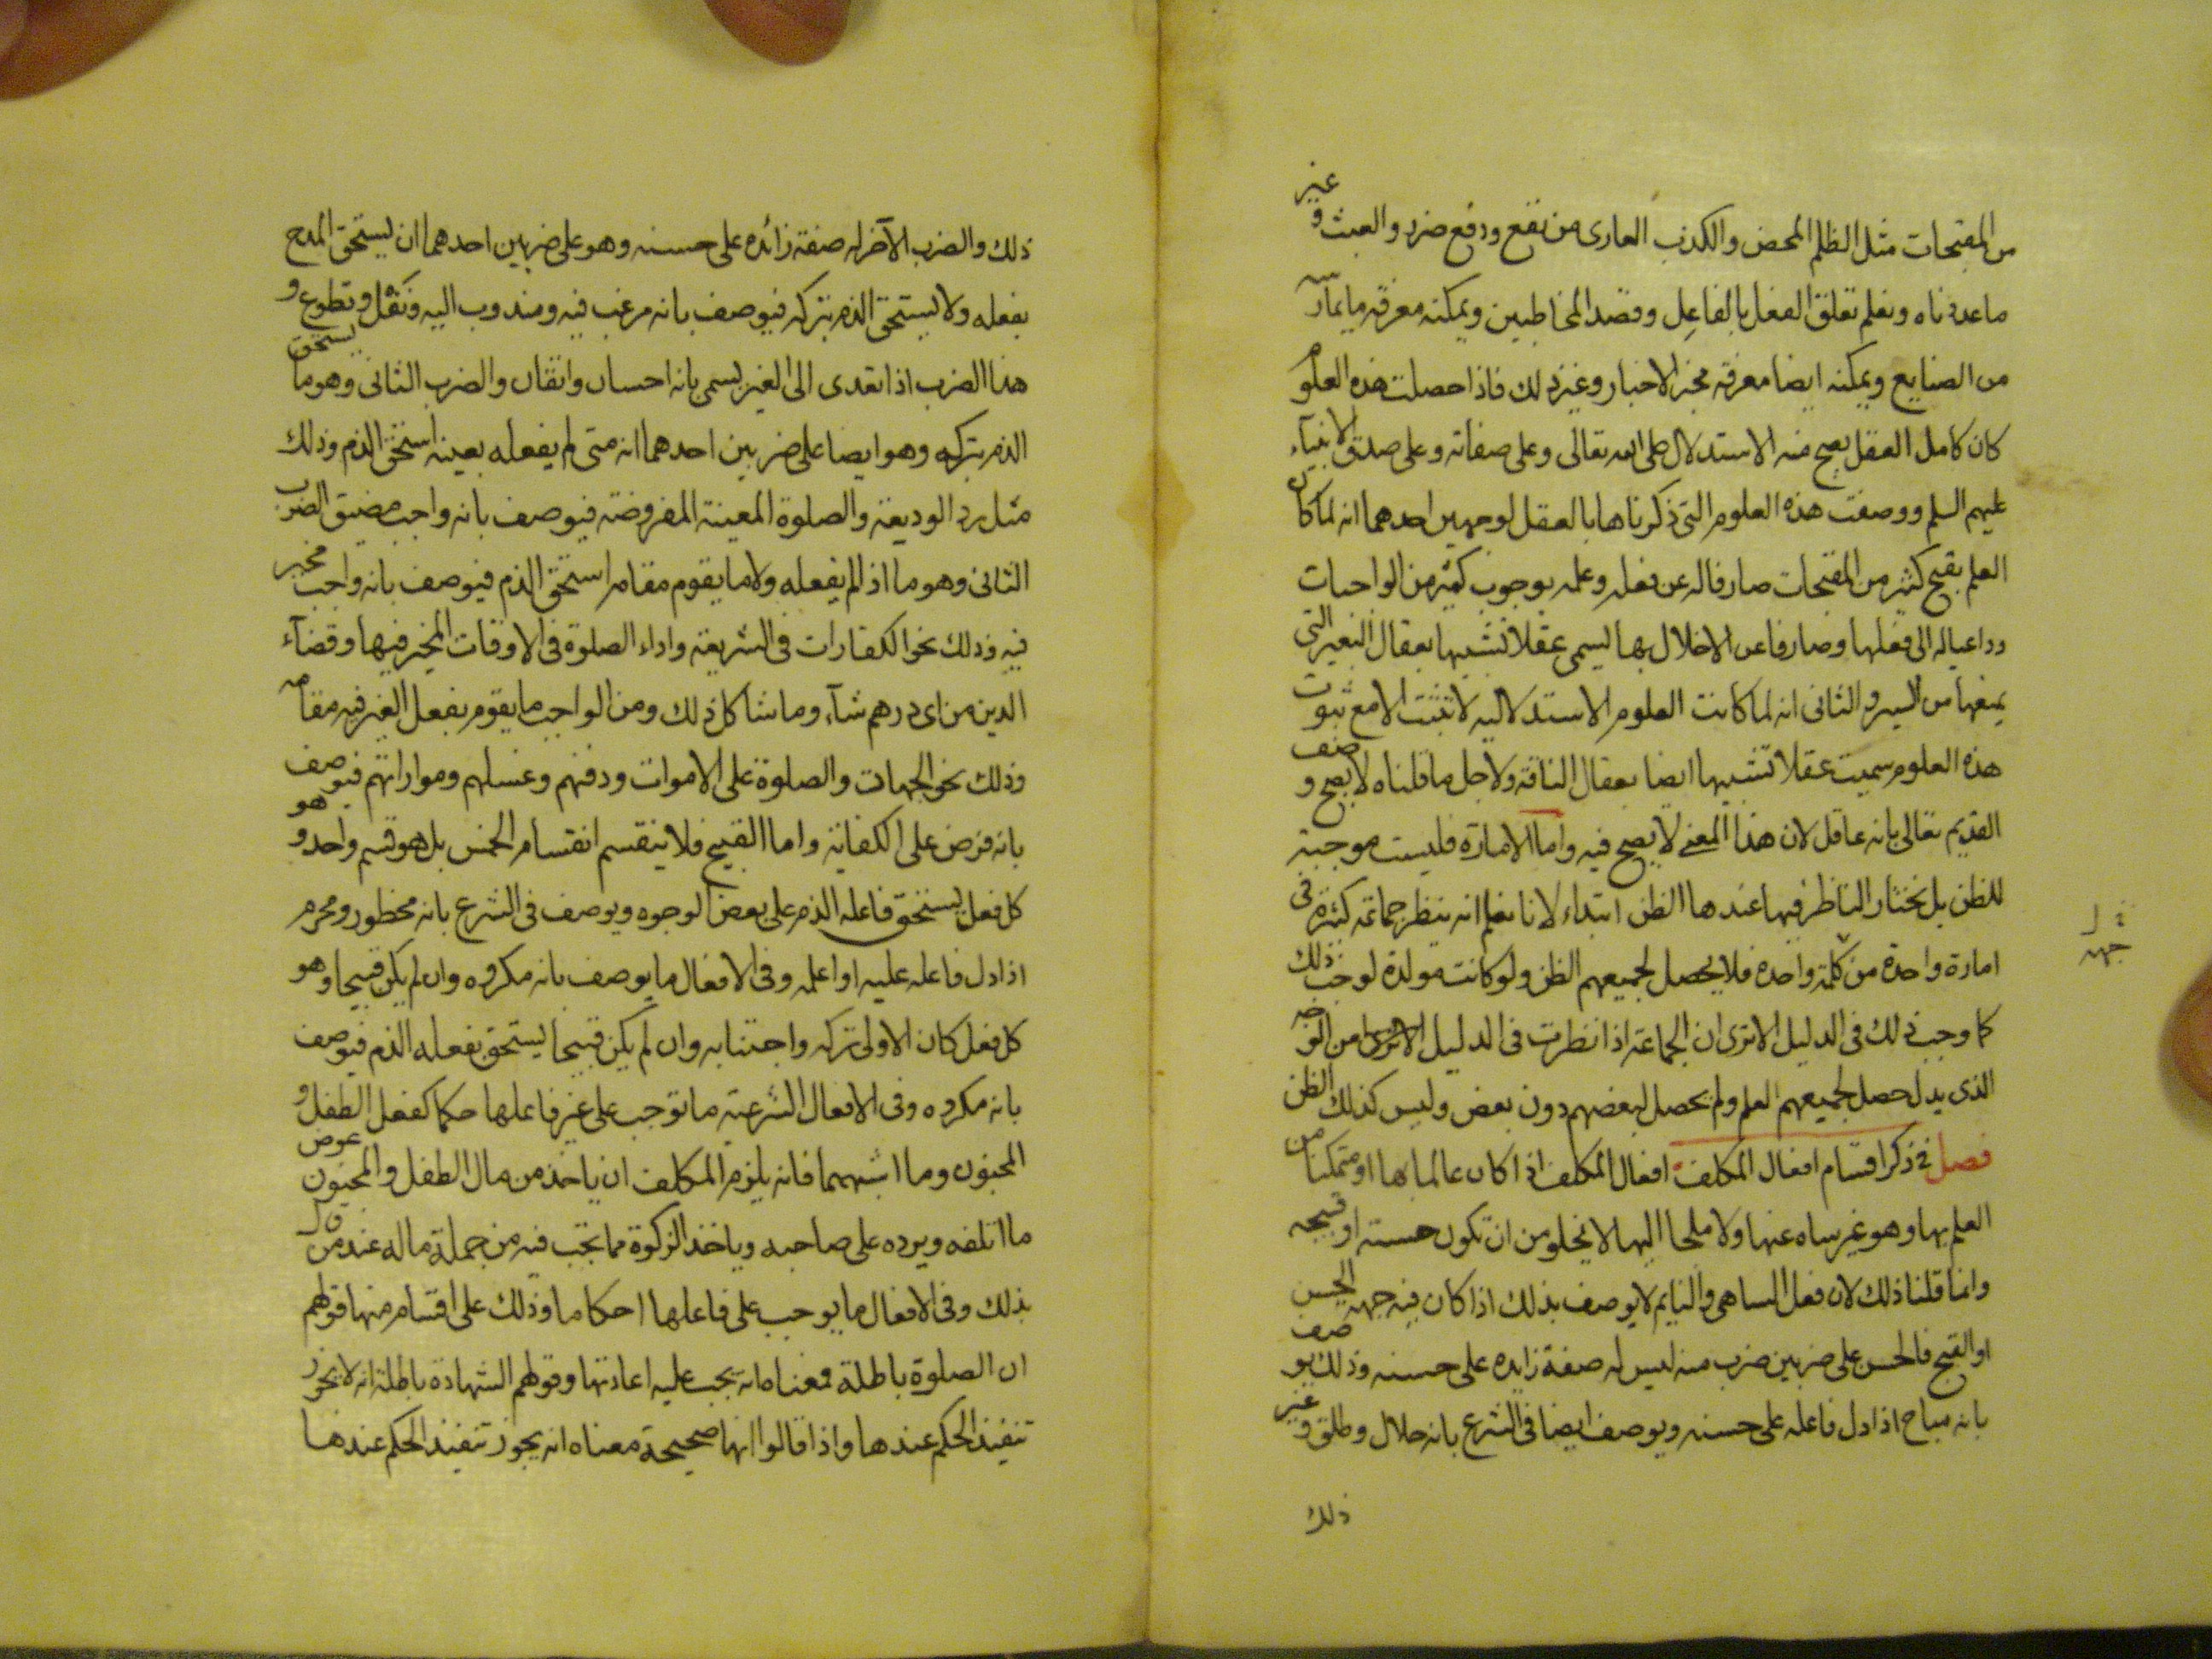 من المقبحات مثل الظلم المحض والكذب العارى من نفع ودفع ضرر والعبث وغير
ما عددناه ونعلم تعلق الفعل بالفاعل وقصد المخاطبين ويمكنه معرفة ما يمارسه
من الصنايع ويمكنه ايضا معرفة مخبر الاخبار وغير ذلك فاذا حصلت هذه العلوم
كان كامل العقل يصح منه الاستدلال على الله تعالى وعلى صفاته وعلى صدق الانبيآء
عليهم السلم ووصفت هذه العلوم التى ذكرناها بالعقل لوجهين احدهما انه لما كان
العلم بقبح كثير من المقبحات صارفا له عن فعله وعلمه بوجوب كثير من الواجبات
وداعيا له الى فعلها وصارفا عن الاخلال بها ليسمى عقلا تشبيها بعقال البعير التى
يمنعها من السير والثانى انه لما كانت العلوم الاستدلاليه لا تثبت الا مع ثبوت
هذه العلوم سميت عقلا تشبيها ايضا بعقال الناقة ولاجل ما قلناه لا يصح وصف
القديم تعالى بانه عاقل لان هذا المعنى لا يصح فيه واما الامارة فليست موجبة
للظن بل يختار الناظر فيها عندها الظن ابتداء لانا نعلم انه ينظر جماعة كثيرة فى
امارة واحدة من كلمة واحدة فلا يحصل لجميعهم الظن ولو كانت مولدة لوجب ذلك
جهه
كما وجب ذلك فى الدليل الا ترى ان الجماعة اذا نظرت فى الدليل الا ترى من الوجه
الذى يدل حصل لجميعهم العلم ولم يحصل لبعضهم دون بعض وليس كذلك الظن
فصل فى ذكر اقسام افعال المكلف افعال المكلف اذا كان عالما بها او متمكنا من
العلم بها وهو غير ساه عنها ولا ملجا اليها لا يخلو من ان تكون حسنة او قبيحه
وانما قلنا ذلك لان فعل الساهى والنايم لا يوصف بذلك اذا كان فيه جهة الحسن
او القبح فالحسن على ضربين ضرب منه ليس له صفة زايده على حسنه وذلك يوصف
بانه مباح اذا دل فاعله على حسنه ويوصف ايضا فى الشرع بانه حلال وطلق وغير
ذلك
ذلك والضرب الآخر له صفة زائده على حسنه وهو على ضربين احدهما ان يستحق المدح
بفعله ولا يستحق الذم بتركه فيوصف بانه مرغب فيه ومندوب اليه ونفل وتطوع و
هذا الضرب اذا تعدى الى الغير يسمى بانه احسان واتقان والضرب الثانى وهو ما يستحق
الذم بتركه وهو ايضا على ضربين احدهما انه متى لم يفعله بعينه استحق الذم وذلك
مثل رد الوديعة والصلوة المعينة المفروضة فيوصف بانه واجب مضيق الضرب
الثانى وهو ما اذا لم يفعله ولا ما يقوم مقامه استحق الذم فيوصف بانه واجب مخير
فيه وذلك نحو الكفارات فى الشريعة واداء الصلوة فى الاوقات المخير فيها وقضآء
الدين من اى درهم شآء وما شاكل ذلك ومن الواجب ما يقوم بفعل الغير فيه مقامه
وذلك نحو الجهات والصلوة على الاموات ودفنهم وغسلهم ومواراتهم فيوصف
بانه فرض على الكفاية واما القبيح فلا ينقسم انقسام الحسن بل هو قسم واحد وهو
كل فعل يستحق فاعله الذم على بعض الوجوه ويوصف فى الشرع بانه محظور ومحرم
اذا دل فاعله عليه او اعلمه وفى الافعال ما يوصف بانه مكروه وان لم يكن قبيحا وهو
كل فعل كان الاولى تركه واجتنابه وان لم يكن قبيحا يستحق بفعله الذم فيوصف
بانه مكروه وفى الافعال الشرعية ما توجب على غير فاعلها حكما كفعل الطفل و
المجنون وما اشبههما فانه يلزم المكلف ان ياخذ من مال الطفل والمجنون عوض
ما اتلفه ويرده على صاحبه وياخذ الزكوة مما يجب فيه من جملة ماله عند من قال
بذلك وفى الافعال ما يوجب على فاعلها احكاما وذلك على اقسام منها قولهم
ان الصلوة باطلة فمعناه انه يجب عليه اعادتها وقولهم الشهادة باطلة انه لا يجوز
تنفيذ الحكم عندها واذا قالوا انها صحيحة معناه انه يجوز تنفيذ الحكم عندها